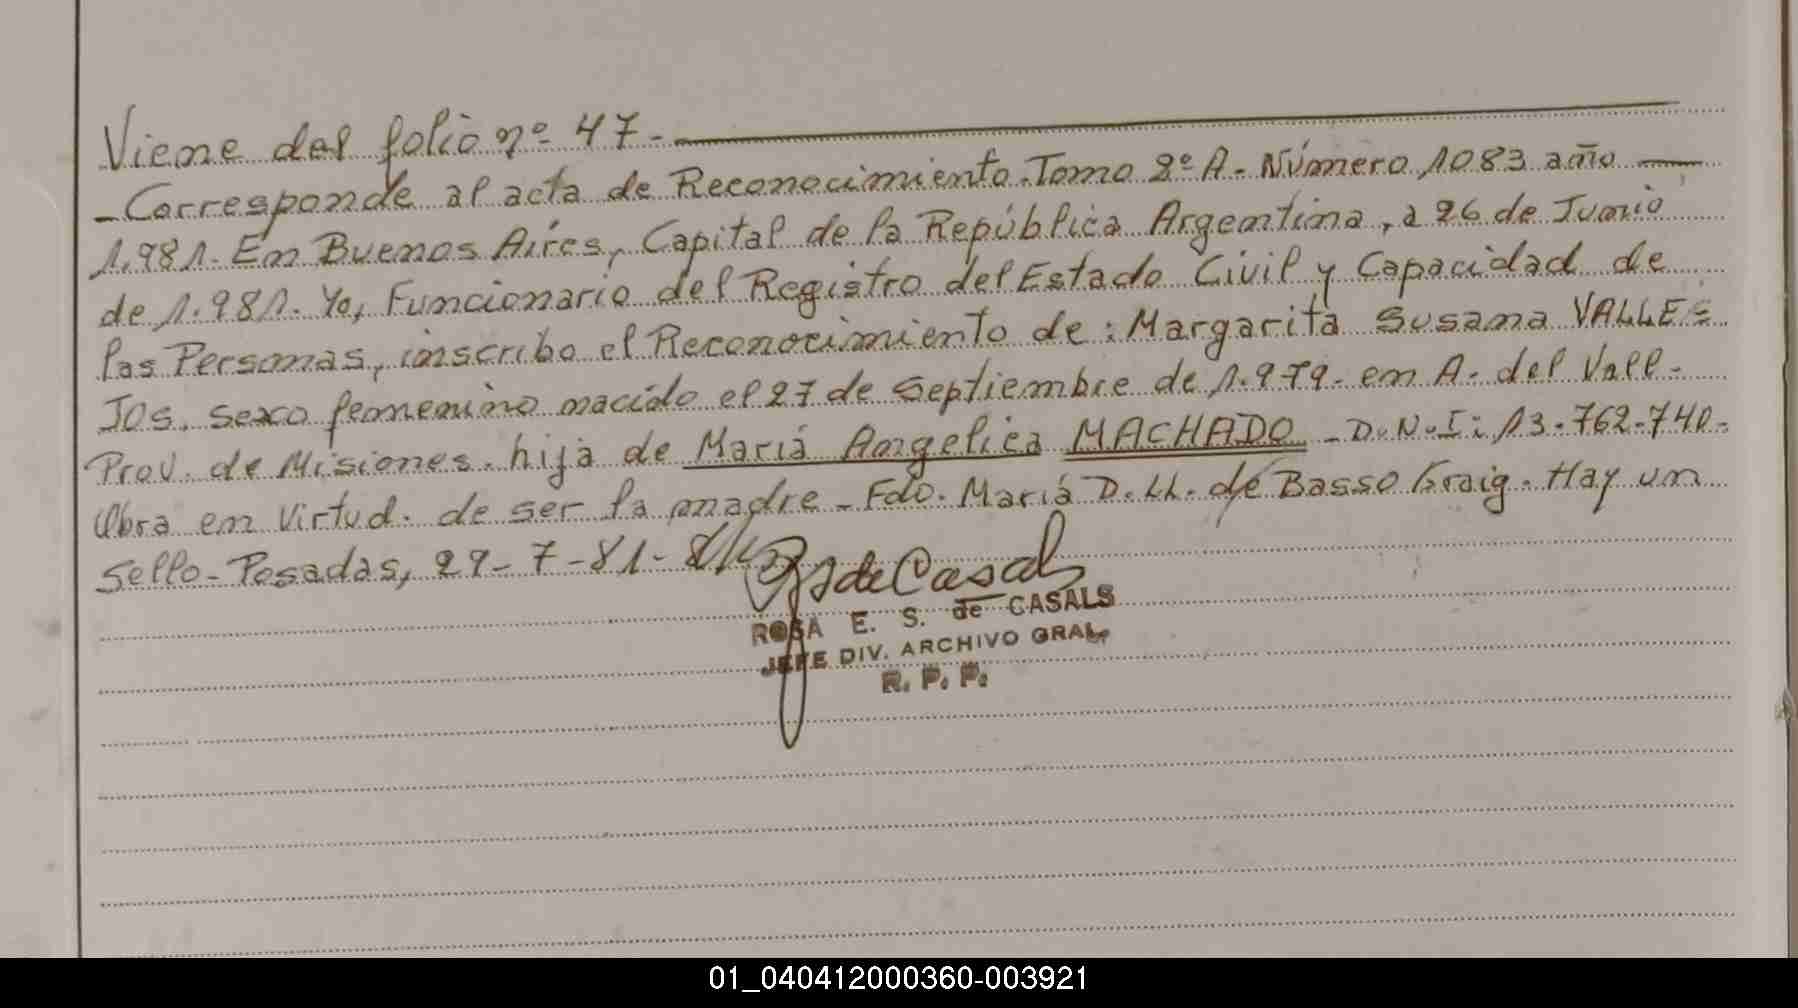 Viene del folio nº 47.
-Corresponde al acta de Reconocimiento.Tomo 2º A. Número 1083 año
1.981. En Buenos Aires, Capital de la República Argentina, a 26 de Junio
de 1.981. Yo, Funcionario del Registro del Estado Civil y Capacidad de
las Personas, inscribo el Reconocimiento de: Margarita Susana VALLE
JOS. sexo femenino nacido el 27 de Septiembre de 1.979. en A. del Vall-
Prov. de Misiones. hija de Mariá Angelica MACHADO - D.N.I: 13.762.740-
Obra en Virtud. de ser la madre - Fdo. Mariá D. Ll. de Basso Graig. Hay un
Sello-Posadas, 29-7-81-
de Casals
ROSA E. S. de CASALS
JEFE DIV. ARCHIVO GRAL.
R. P. P.
01_040412000360-003921